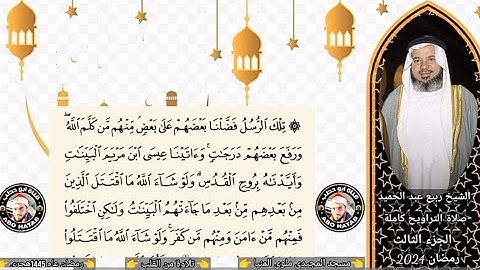 ۞ تِلْكَ الرُّسُلُ فَضَّلْنَا بَعْضَهُمْ عَلَىٰ بَعْضٍ مِّنْهُم مَّن كَلَّمَ اللَّهُ
وَرَفَعَ بَعْضَهُمْ دَرَجَٰتٍ وَءَاتَيْنَا عِيسَى ابْنَ مَرْيَمَ الْبَيِّنَٰتِ
وَأَيَّدْنَٰهُ بِرُوحِ الْقُدُسِ وَلَوْ شَاءَ اللَّهُ مَا اقْتَتَلَ الَّذِينَ
مِن بَعْدِهِم مِّن بَعْدِ مَا جَاءَتْهُمُ الْبَيِّنَٰتُ وَلَٰكِنِ اخْتَلَفُوا
فَمِنْهُم مَّنْ ءَامَنَ وَمِنْهُم مَّن كَفَرَ وَلَوْ شَاءَ اللَّهُ مَا اقْتَتَلُوا
الشيخ ربيع عبد الحميد
صلاة التراويح كاملة
الجزء الثالث
رمضان 2024
رمضان عام 1445 هجري
تلاوة من القلب
مسجد المجيدي ملوي المنيا